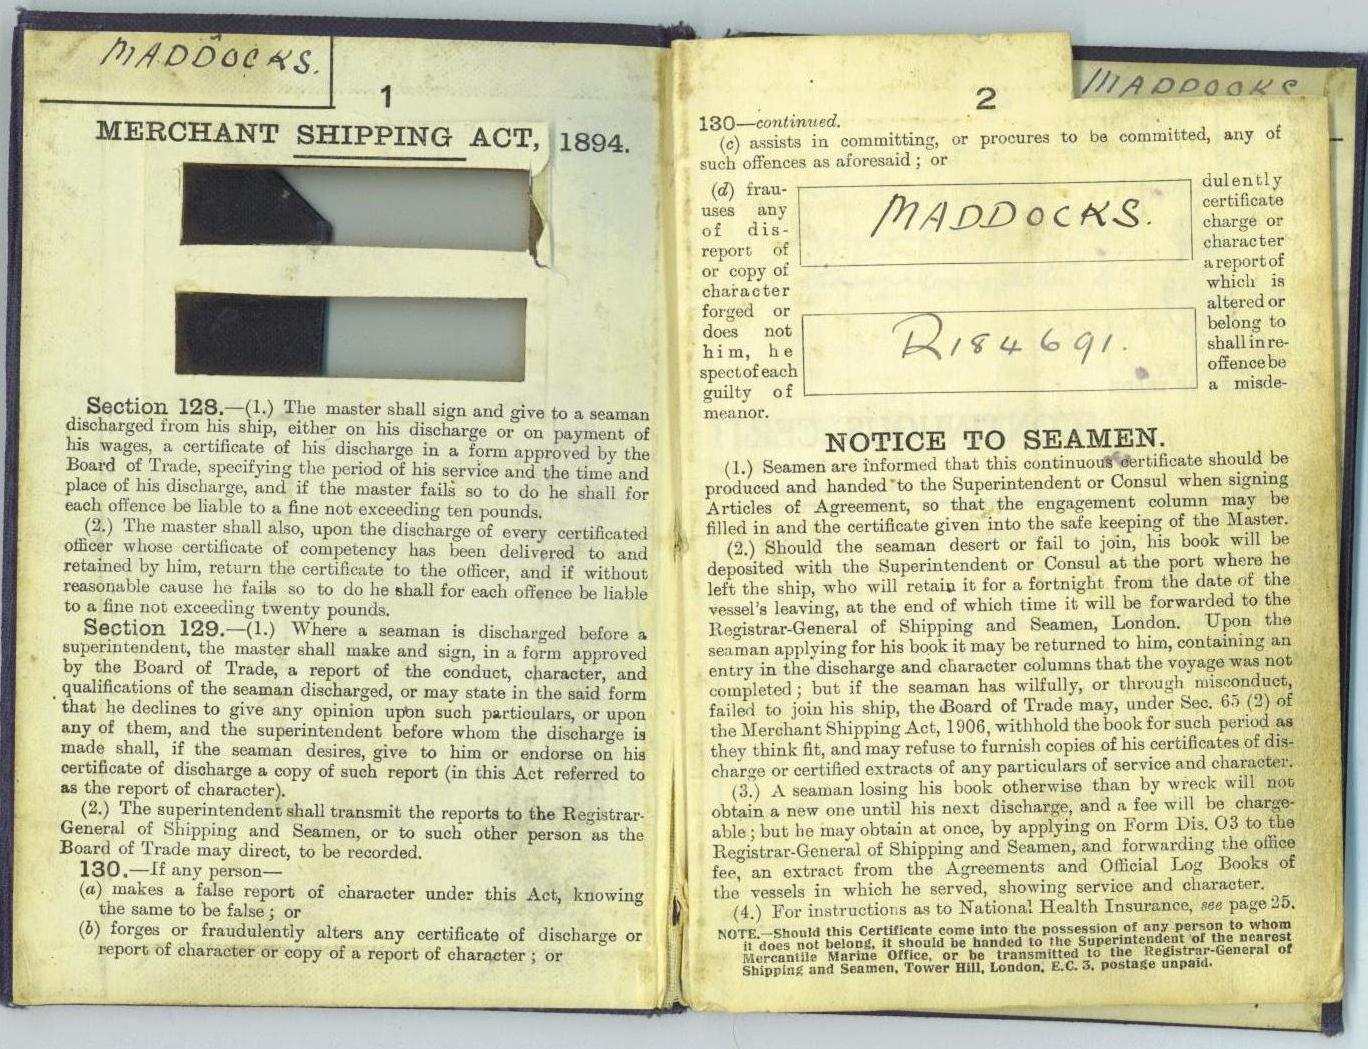 MADDOCKS.
1
MERCHANT SHIPPING ACT, 1894.
Section 128.—(1.) The master shall sign and give to a seaman
discharged from his ship, either on his discharge or on payment of
his wages, a certificate of his discharge in a form approved by the
Board of Trade, specifying the period of his service and the time and
place of his discharge, and if the master fails so to do he shall for
each offence be liable to a fine not exceeding ten pounds.
(2.) The master shall also, upon the discharge of every certificated
officer whose certificate of competency has been delivered to and
retained by him, return the certificate to the officer, and if without
reasonable cause he fails so to do he shall for each offence be liable
to a fine not exceeding twenty pounds.
Section 129.—(1.) Where a seaman is discharged before a
superintendent, the master shall make and sign, in a form approved
by the Board of Trade, a report of the conduct, character, and
qualifications of the seaman discharged, or may state in the said form
that he declines to give any opinion upon such particulars, or upon
any of them, and the superintendent before whom the discharge is
made shall, if the seaman desires, give to him or endorse on his
certificate of discharge a copy of such report (in this Act referred to
as the report of character).
(2.) The superintendent shall transmit the reports to the Registrar-
General of Shipping and Seamen, or to such other person as the
Board of Trade may direct, to be recorded.
130.—If any person—
(a) makes a false report of character under this Act, knowing
the same to be false; or
(b) forges or fraudulently alters any certificate of discharge or
report of character or copy of a report of character; or
MADDOCKS
2
130—continued.
(c) assists in committing, or procures to be committed, any of
such offences as aforesaid; or
(d) frau- dulently
uses any certificate
of dis- charge or
report of character
or copy of a report of
character which is
forged or altered or
does not belong to
him, he shall in re-
spect of each offence be
guilty of a misde-
meanor.
MADDOCKS.
R184691.
NOTICE TO SEAMEN.
(1.) Seamen are informed that this continuous certificate should be
produced and handed to the Superintendent or Consul when signing
Articles of Agreement, so that the engagement column may be
filled in and the certificate given into the safe keeping of the Master.
(2.) Should the seaman desert or fail to join, his book will be
deposited with the Superintendent or Consul at the port where he
left the ship, who will retain it for a fortnight from the date of the
vessel's leaving, at the end of which time it will be forwarded to the
Registrar-General of Shipping and Seamen, London. Upon the
seaman applying for his book it may be returned to him, containing an
entry in the discharge and character columns that the voyage was not
completed; but if the seaman has wilfully, or through misconduct,
failed to join his ship, the Board of Trade may, under Sec. 65 (2) of
the Merchant Shipping Act, 1906, withhold the book for such period as
they think fit, and may refuse to furnish copies of his certificates of dis-
charge or certified extracts of any particulars of service and character.
(3.) A seaman losing his book otherwise than by wreck will not
obtain a new one until his next discharge, and a fee will be charge-
able; but he may obtain at once, by applying on Form Dis. O3 to the
Registrar-General of Shipping and Seamen, and forwarding the office
fee, an extract from the Agreements and Official Log Books of
the vessels in which he served, showing service and character.
(4.) For instructions as to National Health Insurance, see page 25.
NOTE.—Should this Certificate come into the possession of any person to whom
it does not belong, it should be handed to the Superintendent of the nearest
Mercantile Marine Office, or be transmitted to the Registrar-General of
Shipping and Seamen, Tower Hill, London, E.C. 3, postage unpaid.